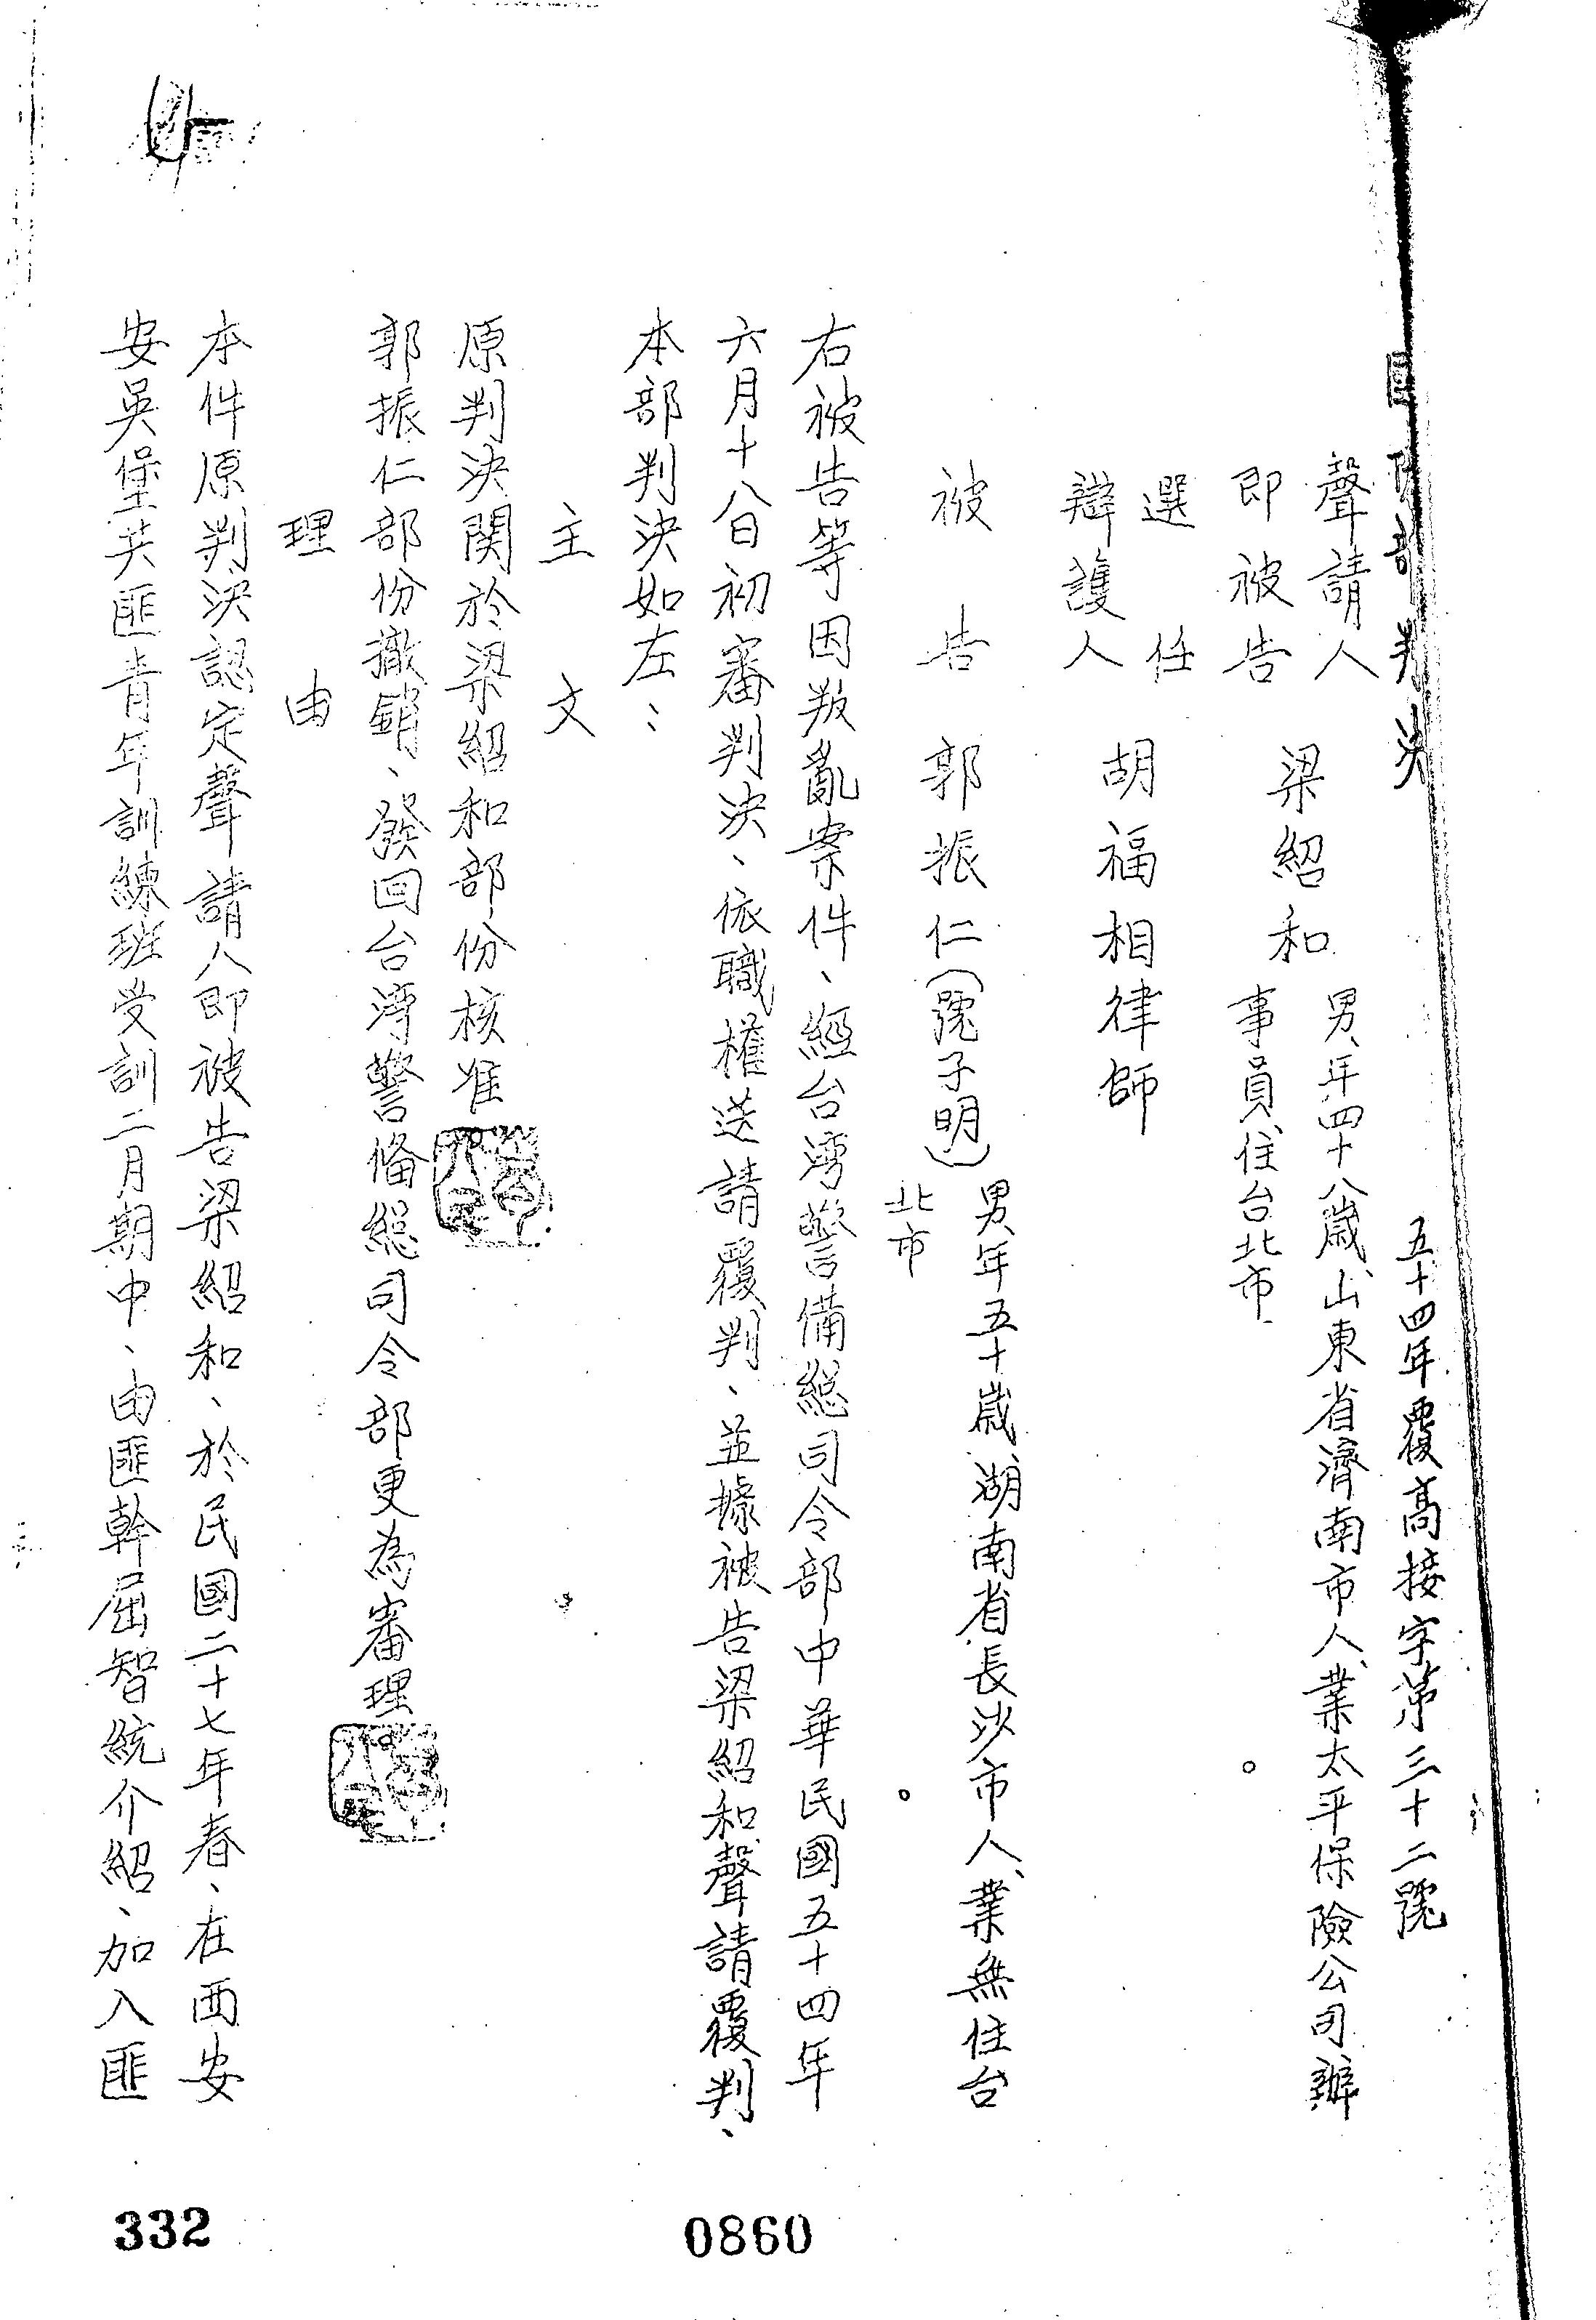 國防部判決
五十四年覆高接字第三十二號
聲請人
即被告
梁紹和
男、年四十八歲、山東省濟南市人、業太平保險公司辦
事員、住台北市
。
選任
辯護人
胡福相律師
被告
郭振仁(號子明)
男、年五十歲、湖南省長沙市人、業無住台
北市
。
右被告等因叛亂案件、經台湾警備総司令部中華民國五十四年
六月十八日初審判決、依職權送請覆判、並據被告梁紹和聲請覆判、
本部判決如左:
主文
原判決関於梁紹和部份核准
郭振仁部份撤銷、發回台湾警俻総司令部更為審理。
理由
本件原判決認定聲請人即被告梁紹和、於民國二十七年春、在西安
安吳堡共匪青年訓練班受訓二月期中、由匪幹屈智統介紹、加入匪
332
0860